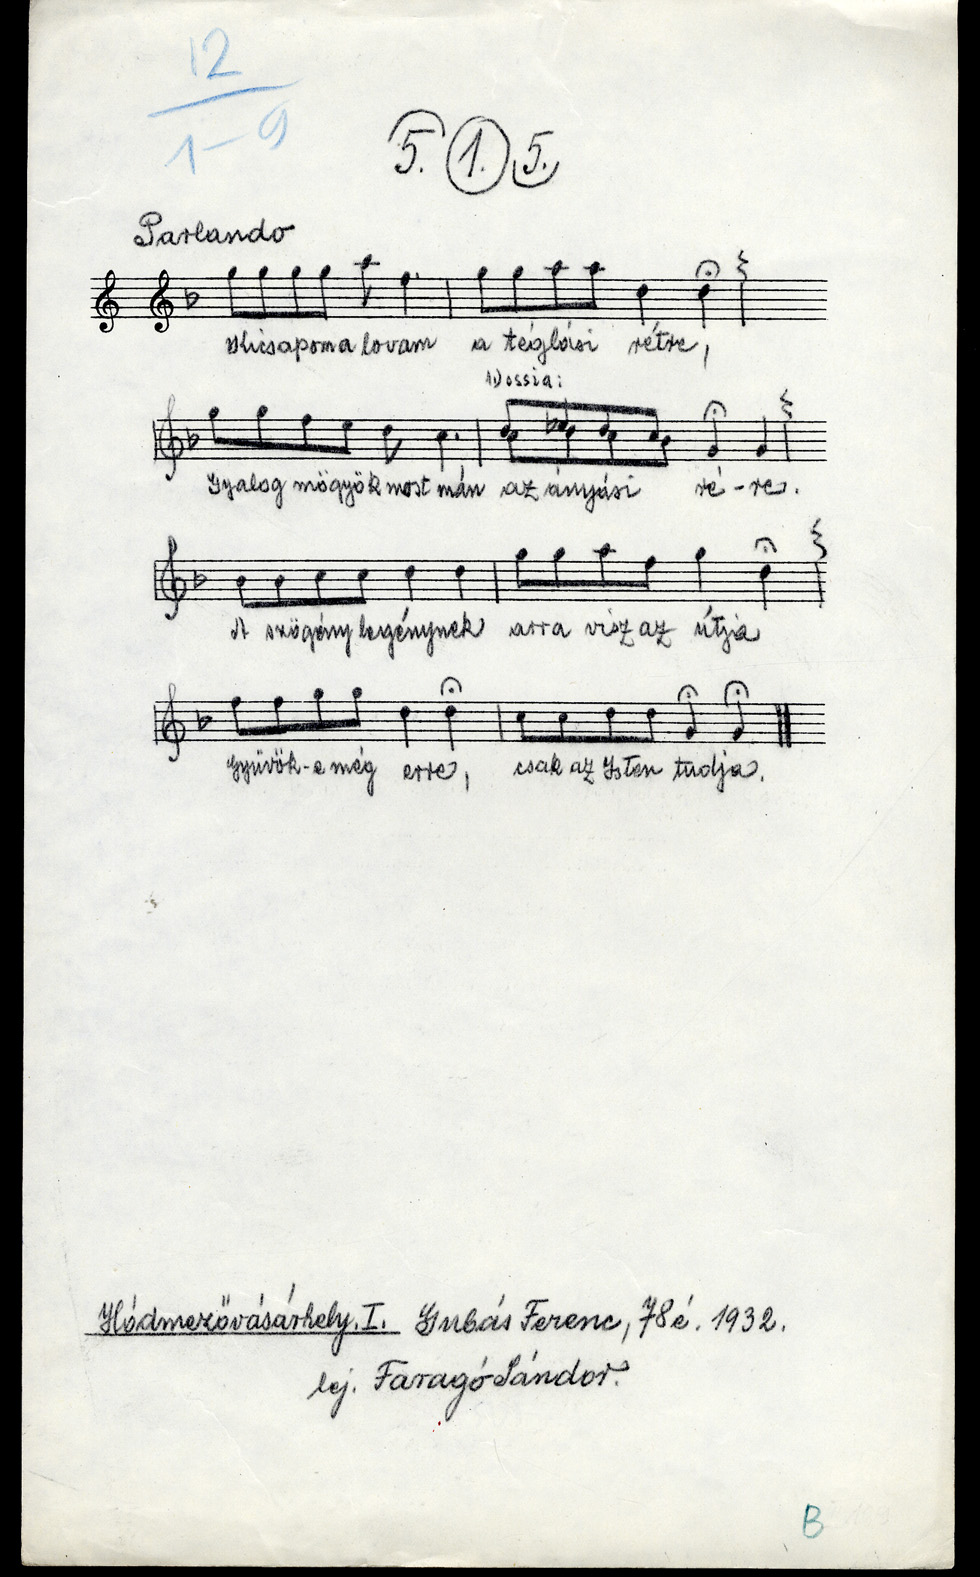 12
1-9
5. 1. 5.
Parlando
Kicsapom a lovam a téglási rétre,
Vossia:
Gyalog mögyök most mán az ányási ré-re.
A szögény legénynek arra visz az útja
Gyüvök-e még erre, csak az Isten tudja.
Hódmezővásárhely. I. Gubás Ferenc, 78 é. 1932.
lej. Faragó Sándor.
B